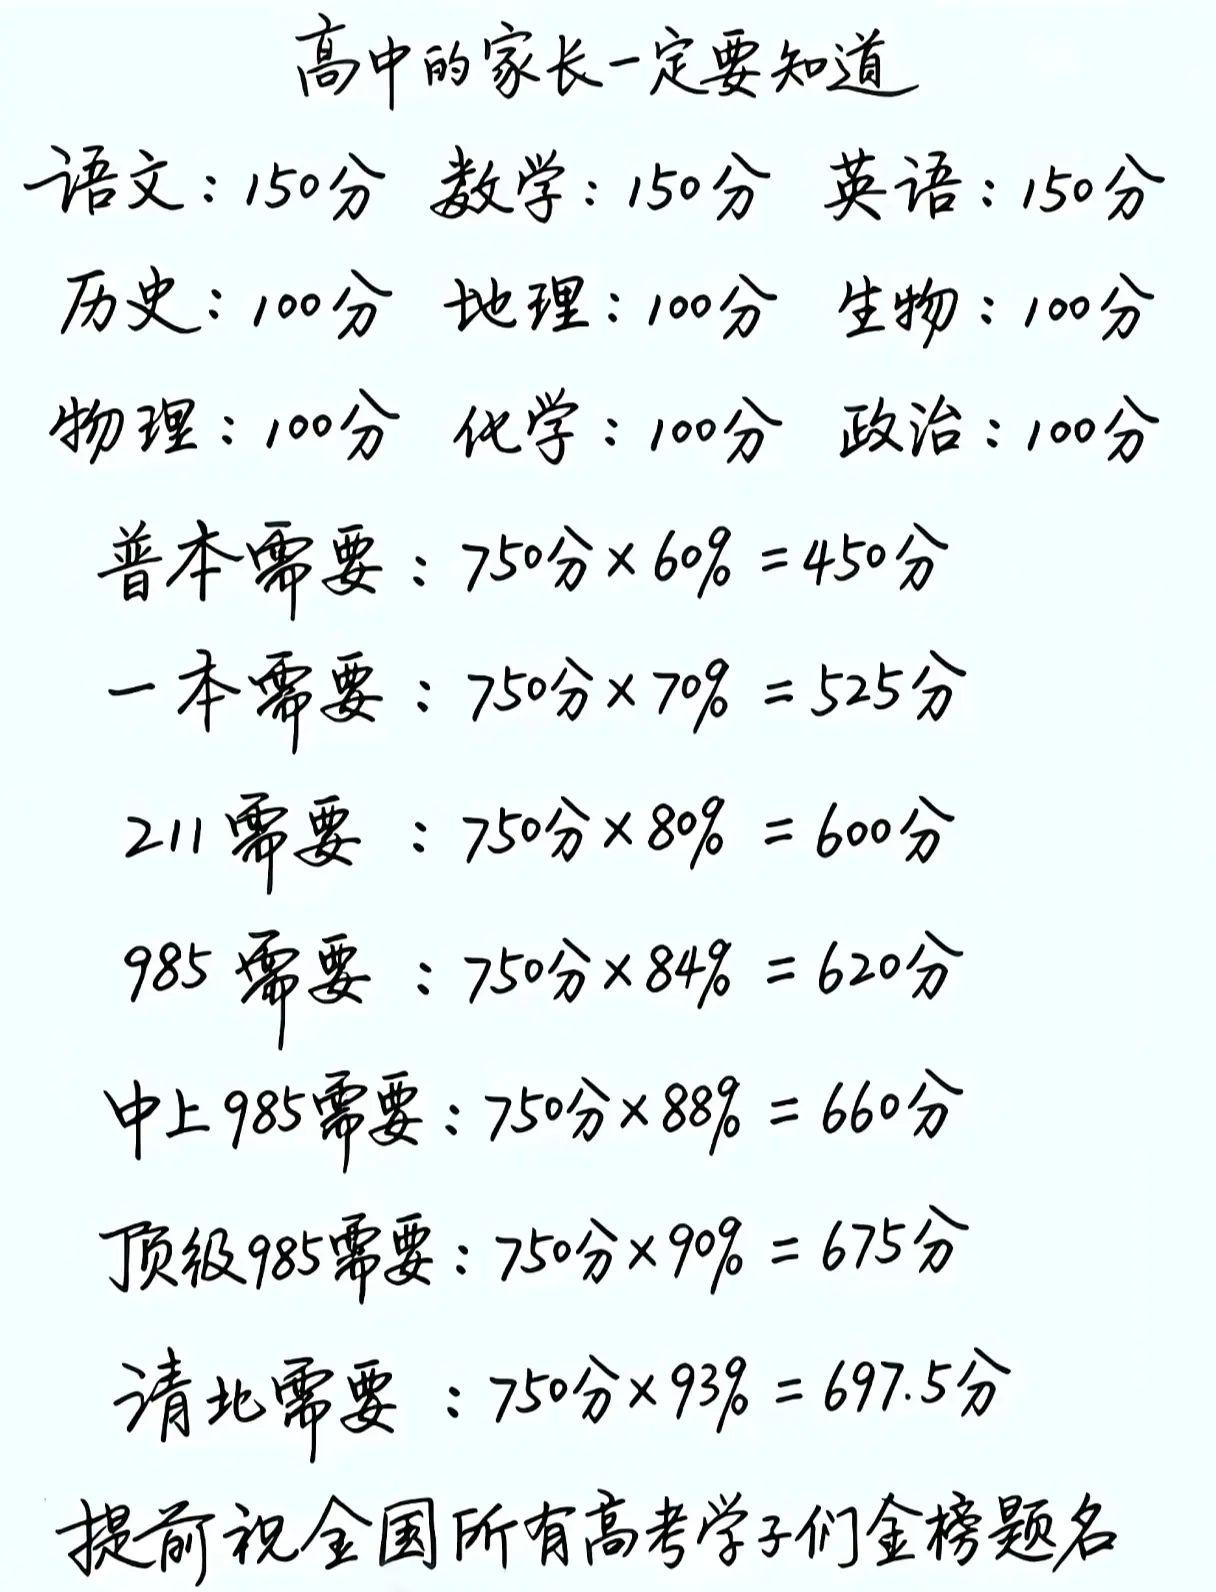 高中的家长一定要知道
语文：150分 数学：150分 英语：150分
历史：100分 地理：100分 生物：100分
物理：100分 化学：100分 政治：100分
普本需要：750分×60%=450分
一本需要：750分×70%=525分
211需要：750分×80%=600分
985需要：750分×84%=620分
中上985需要：750分×88%=660分
顶级985需要：750分×90%=675分
请北需要：750分×93%=697.5分
提前祝全国所有高考学子们金榜题名